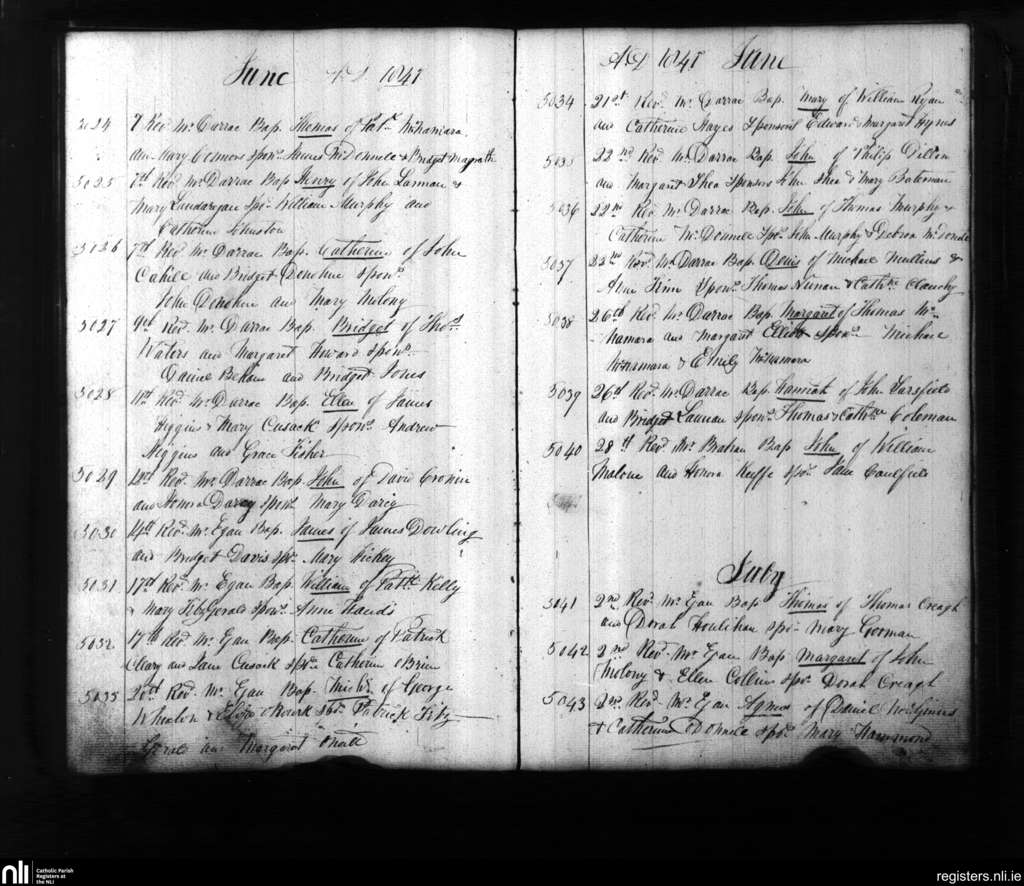 June AD 1847
5024 7 Rev. Mc Darrac Bap. Thomas of Pat. McNamara
and Mary Connors Spon. James McDonnell & Bridget Magrath
5025 7th Rev. Mc Darrac Bap Henry of John Lannan &
Mary Landaragan Spo. William Murphy and
Catherine Johnston
5026 7th Rev. Mc Darrac Bap. Catherine of John
Cahill and Bridget Donohue Spon.
John Donohue and Mary Molony
5027 9th Rev. Mc Darrac Bap. Bridget of Thos.
Waters and Margaret Howard Spon.
Daniel Bellow and Bridget Jones
5028 11th Rev. Mc Darrac Bap. Ellen of James
Higgins & Mary Cusack Spon. Andrew
Higgins and Grace Fisher
5029 Rev. Mc Darrac Bap. John of David Cronin
and Honora Darcy Spon. Mary
5030 14th Rev. Mc Egan Bap. James of James Dowling
and Bridget Davis Spo. Mary Hickey
5031 17th Rev. Mc Egan Bap. William of Patk. Kelly
& Mary FitzGerald Spon. Anne Hands
5032 17th Rev. Mc Egan Bap. Catherine of Patrick
Cleary and Jane Cusack Spo. Catherine OBrien
5033 20th Rev. Mc Egan Bap. Michl. of George
Whelan & Eliza ORourk Spo. Patrick Fitz
Gerald and Margaret
AD 1847 June
5034 21st Rev. Mc Darrac Bap. Mary of William Ryan
and Catherine Hayes Sponsors Edward & Margaret Hynes
5035 22nd Rev. Mc Darrac Bap. John of Philip Dillon
and Margaret Shea Sponsors John Shea & Mary Bateman
5036 22nd Rev. Mc Darrac Bap. John of Thomas Murphy &
Catherine McDonnell Spo. John Murphy & McDonell
5037 22nd Rev. Mc Darrac Bap. Denis of Michael Mullens &
Anne Finn Spon. Thomas Nunan & Cathne. Clanchy
5038 26th Rev. Mc Darrac Bap Margaret of Thomas Mc
Namara and Margaret Spon. Michael
McNamara & Emily McNamara
5039 26th Rev. Mc Darrac Bap. Hannah of John Sarsfield
and Bridget Lannan Spon. Thomas & Cathne Coleman
5040 28th Rev. Mc Mahan Bap John of William
Malone and Honora Keeffe Spo. Jane Caulfield
July
5041 2nd Rev. Mc Egan Bap. Thomas of Thomas Creagh
and Dorah Houlihan Spo. Mary Gorman
5042 2nd Rev. Mc Egan Bap. Margaret of John
Molony & Ellen Collins Spo. Dorah Creagh
5043 2nd Rev. Mc Egan Agnes of Daniel
& Catherine ODonnell Spo. Mary Hammond
nli Catholic Parish
Registers at
the NLI
registers.nli.ie